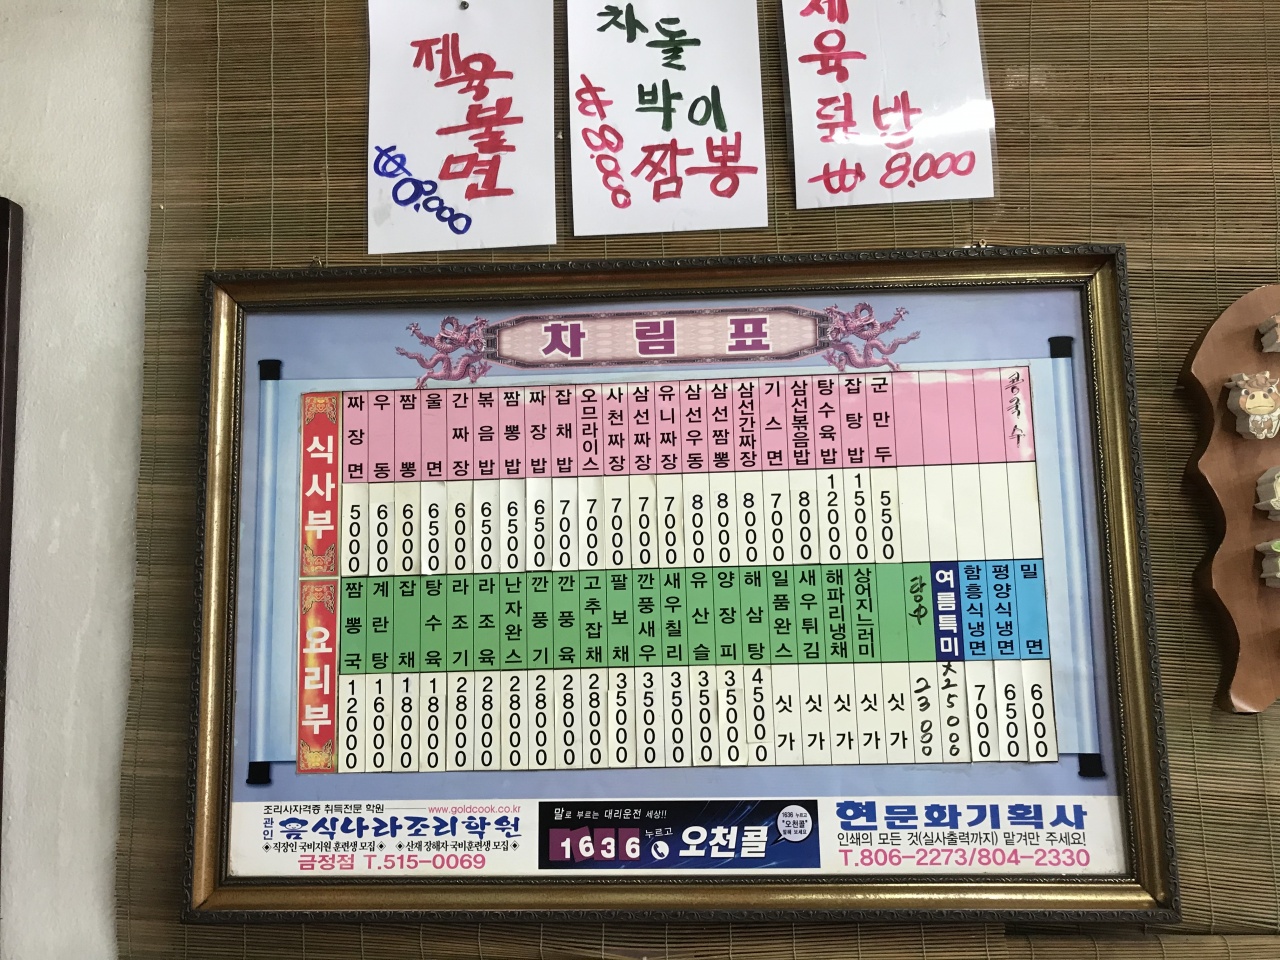 제육불면
₩8,000
차돌
박이
짬뽕
₩8,000
제육
덮밥
₩8,000
차림표
식사부
짜장면 5000
우동 6000
짬뽕 6000
울면 6500
간짜장 6000
볶음밥 6500
짬뽕밥 6500
짜장밥 6500
잡채밥 7000
오므라이스 7000
사천짜장 7000
삼선짜장 7000
유니짜장 7000
삼선우동 8000
삼선짬뽕 8000
삼선간짜장 8000
기스면 7000
삼선볶음밥 8000
탕수육밥 12000
잡탕밥 15000
군만두 5500
콩국수
요리부
짬뽕국 12000
계란탕 16000
잡채 18000
탕수육 18000
라조기 28000
라조육 28000
난자완스 28000
깐풍기 28000
깐풍육 28000
고추잡채 28000
팔보채 35000
깐풍새우 35000
새우칠리 35000
유산슬 35000
양장피 35000
해삼탕 45000
일품완스 싯가
새우튀김 싯가
해파리냉채 싯가
상어지느러미 싯가
싯가
탕中 23000
大25000
여름특미
함흥식냉면 7000
평양식냉면 6500
밀면 6000
조리사자격증 취득전문 학원 www.goldcook.co.kr
관인 음식나라조리학원
◆직장인 국비지원 훈련생 모집◆ ◆산재 장해자 국비훈련생 모집◆
금정점 T.515-0069
말로 부르는 대리운전 세상!!
1636 누르고 오천콜
1636 누르고
"오천콜"
말해 보세요
현문화기획사
인쇄의 모든 것(실사출력까지) 맡겨만 주세요!
T.806-2273/804-2330